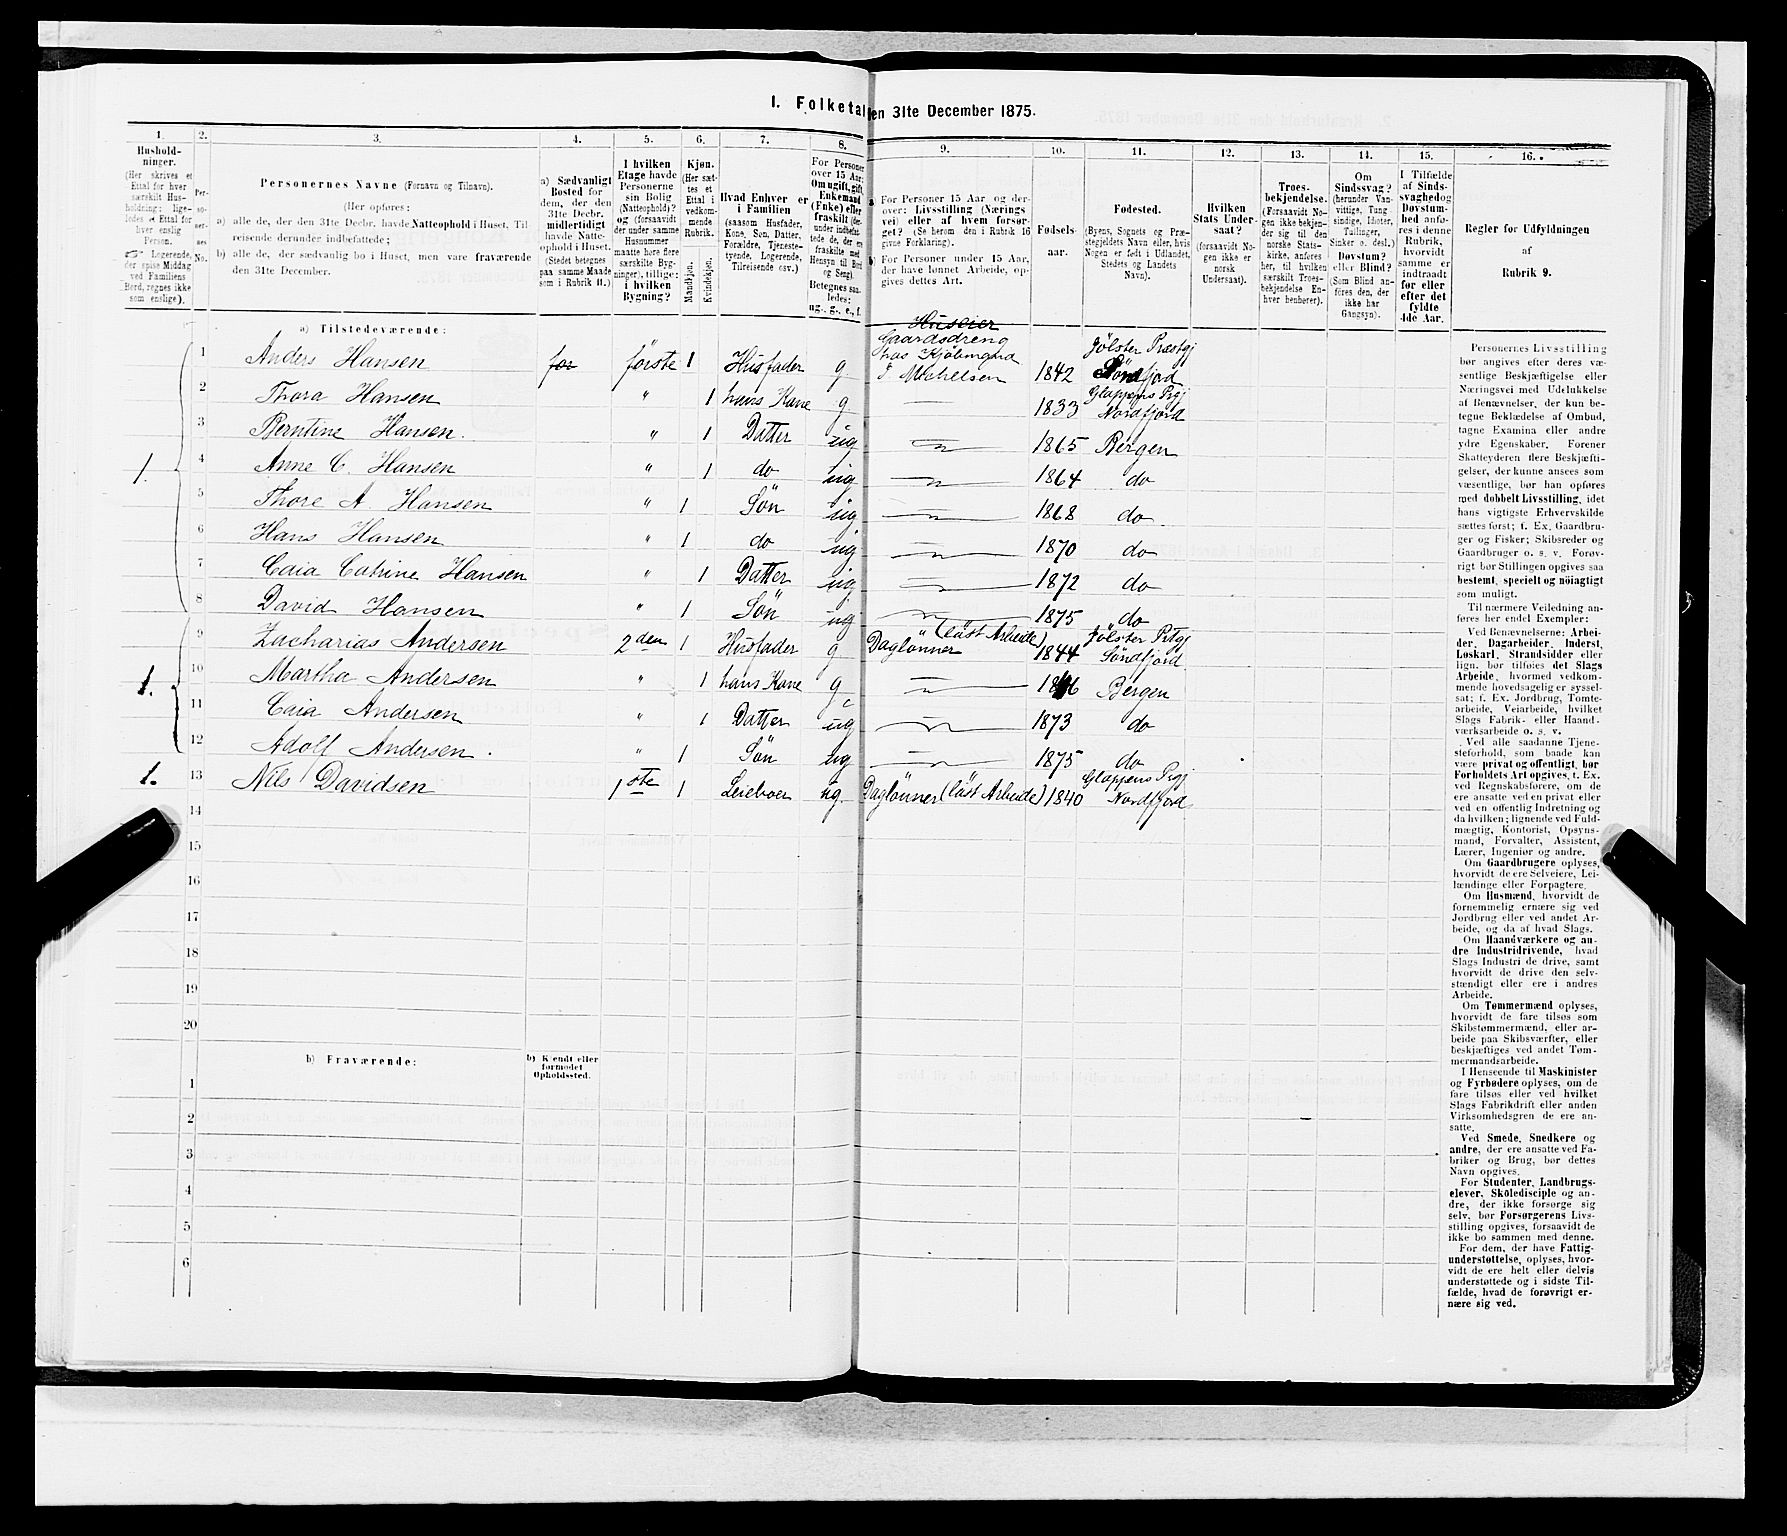 I. Folketal den 31te December 1875.
1. 2. 3. 4. 5. 6. 7. 8. 9. 10. 11. 12. 13. 14. 15. 16.
Hushold-
ninger.
(Her skrives et
Ettal for hver
særskilt Hus-
holdning; lige-
ledes et Ettal for
hver enslig
Person.
☞ Logerende,
der spise Middag
ved Familiens
Bord, regnes ikke
som enslige).
Per-
so-
ner-
nes
No.
Personernes Navne (Fornavn og Tilnavn).
(Her opføres:
a) alle de, der den 31te Decbr. havde Natteophold i Huset. Til
reisende derunder indbefattede;
b) alle de, der sædvanlig bo i Huset, men vare fraværende
den 31te December.
a) Sædvanligt
Bosted for
dem, der den
31te Decbr.
midlertidigt
havde Natte-
ophold i Huset.
(Stedet betegnes
paa samme Maade
som i Rubrik 11.)
I hvilken
Etage havde
Personerne
sin Bolig
(Natteophold)?
og (forsaavidt
der under samme
Husnummer
maatte høre flere
særskilte Byg-
ninger), tillige:
i hvilken
Bygning?
Kjøn.
(Her sæt-
tes et
Ettal i
vedkom-
mende
Rubrik.
Mandkjøn.
Kvindekjøn.
Hvad Enhver er
i Familien
(saasom Husfader,
Kone, Søn, Datter,
Forældre, Tjeneste-
tyende, Logerende,
Tilreisende osv.)
For Personer
over 15 Aar:
Om ugift, gift,
Enkemand
(Enke) eller
fraskilt (der-
under indbefat-
tede de, der ere
fraskilte med
Hensyn til Bord
og Seng).
Betegnes saa-
ledes:
ug., g., e., f.
a) For Personer 15 Aar og der-
over: Livsstilling (Nærings
vei) eller af hvem forsør-
get? (Se herom den i Rubrik 16
givne Forklaring).
b) For Personer under 15 Aar,
der have lønnet Arbeide, op-
gives dettes Art.
Fødsels-
aar.
Fødested.
(Byens, Sognets og Præ-
stegjeldets Navn eller, hvis
Nogen er født i Udlandet,
Stedets og Landets
Navn).
Hvilken
Stats Under-
saat?
(forsaavidt No-
gen ikke er
norsk
Undersaat).
Troes-
bekjendelse.
(Forsaavidt No-
gen ikke bekjen-
der sig til den
norske Stats-
kirke, anføres
her, til hvilken
særskilt Troes-
bekjendelse En-
hver henhører).
Om
Sindssvag?
(herunder Van-
vittige, Tung
sindige, Idioter,
Tullinger,
Sinker o. desl.)
Døvstum?
eller Blind?
(Som Blind an-
føres den, der
ikke har
Gangsyn).
I Tilfælde
af Sinds-
svaghed og
Døvstum-
hed anfø-
res i denne
Rubrik,
hvorvidt
samme er
indtraadt
før eller
efter det
fyldte
4de Aar.
Regler for Udfyldningen
af
Rubrik 9.
a) Tilstedeværende:
1 Anders Hansen for første 1 Husfader g Huseier Gaardsdreng hos Kjøbmand J Michelsen 1842 Jølster Præstgj Søndfjord
2 Thora Hansen " 1 hans Kone g — 1833 Gloppens Prgj Nordfjord
3 Berntine Hansen. " 1 Datter ug —"— 1865 Bergen
1. 4 Anne C. Hansen " 1 do ug —"— 1864 do
5 Thore A Hansen " 1 Søn ug —"— 1868 do
6 Hans Hansen " 1 do ug —"— 1870 do
7 Caia Catrine Hansen " 1 Datter ug —"— 1872 do
8 David Hansen " 1 Søn ug —"— 1875 do
9 Zacharias Andersen 2den 1 Husfader g Daglønner (løst Arbeide) 1844 Jølster Prtgj Søndfjord
1. 10 Martha Andersen " 1 hans Kone g —"— Bergen
11 Caia Andersen " 1 Datter ug —"— 1873 do
12 Adolf Andersen. " 1 Søn ug —"— 1875 do
1. 13 Nils Davidsen 1ste 1 Leieboer ug. Daglønner (løst Arbeide) 1840 Gloppens Prgj Nordfjord
14
15
16
17
18
19
20
b) Fraværende:
b) Kjendt eller
formodet
Opholdssted.
1
2
3
4
5
6
Personernes Livsstilling
bør angives efter deres væ-
sentlige Beskjæftigelse eller
Næringsvei med Udelukkelse
af Benævnelser, der kun be-
tegne Beklædelse af Ombud,
tagne Examina eller andre
ydre Egenskaber. Forener
Skatteyderen flere Beskjæfti-
gelser, der kunne ansees som
væsentlige, bør han opføres
med dobbelt Livsstilling, idet
hans vigtigste Erhvervskilde
sættes først; f. Ex. Gaardbru-
ger og Fisker; Skibsreder og
Gaardbruger o. s. v. Forøv-
rigt bør Stillingen opgives saa
bestemt, specielt og nöiagtigt
som muligt.
Til nærmere Veiledning an-
føres her endel Exempler:
Ved Benævnelserne: Arbei-
der, Dagarbeider, Inderst,
Løskarl, Strandsidder eller
lign. bør tilføies det Slags
Arbeide, hvormed vedkom-
mende hovedsagelig er syssel-
sat; f. Ex. Jordbrug, Tomte-
arbeide, Veiarbeide, hvilket
Slags Fabrik- eller Haand-
værksarbeide o. s. v.
Ved alle saadanne Tjene-
steforhold, som baade kan
være privat og offentlig, bør
Forholdets Art opgives, t. Ex.
ved Regnskabsførere, om de
ere ansatte ved en privat eller
ved en offentlig Indretning og
da hvilken; lignende ved Fuld-
mægtig, Kontorist, Opsyns-
mand, Forvalter, Assistent,
Lærer, Ingeniør og andre.
Om Gaardbrugere oplyses,
hvorvidt de ere Selveiere, Lei-
lændinge eller Forpagtere.
Om Husmænd, hvorvidt de
fornemmelig ernære sig ved
Jordbrug eller ved andet Ar-
beide, og da af hvad Slags.
Om Haandværkere og an-
dre Industridrivende, hvad
Slags Industri de drive, samt
hvorvidt de drive den selv-
stændigt eller ere i andres
Arbeide.
Om Tømmermænd oplyses,
hvorvidt de fare tilsøs som
Skibstømmermænd, eller ar-
beide paa Skibsværfter, eller
beskjæftiges ved andet Tøm-
mermandsarbeide.
I Henseende til Maskinister
og Fyrbødere oplyses, om de
fare tilsøs eller ved hvilket
Slags Fabrikdrift eller anden
Virksomhedsgren de ere an-
satte.
Ved Smede, Snedkere og
andre, der ere ansatte ved Fa-
briker og Brug, bør dettes
Navn opgives.
For Studenter, Landbrugs-
elever, Skoledisciple og an-
dre, der ikke forsørge sig
selv, bør Forsørgerens Livs-
stilling opgives, forsaavidt de
ikke bo sammen med denne.
For dem, der have Fattig-
understøttelse, oplyses, hvor-
vidt de ere helt eller delvis
understøttede og i sidste Til-
fælde, hvad de forøvrigt er-
nære sig ved.